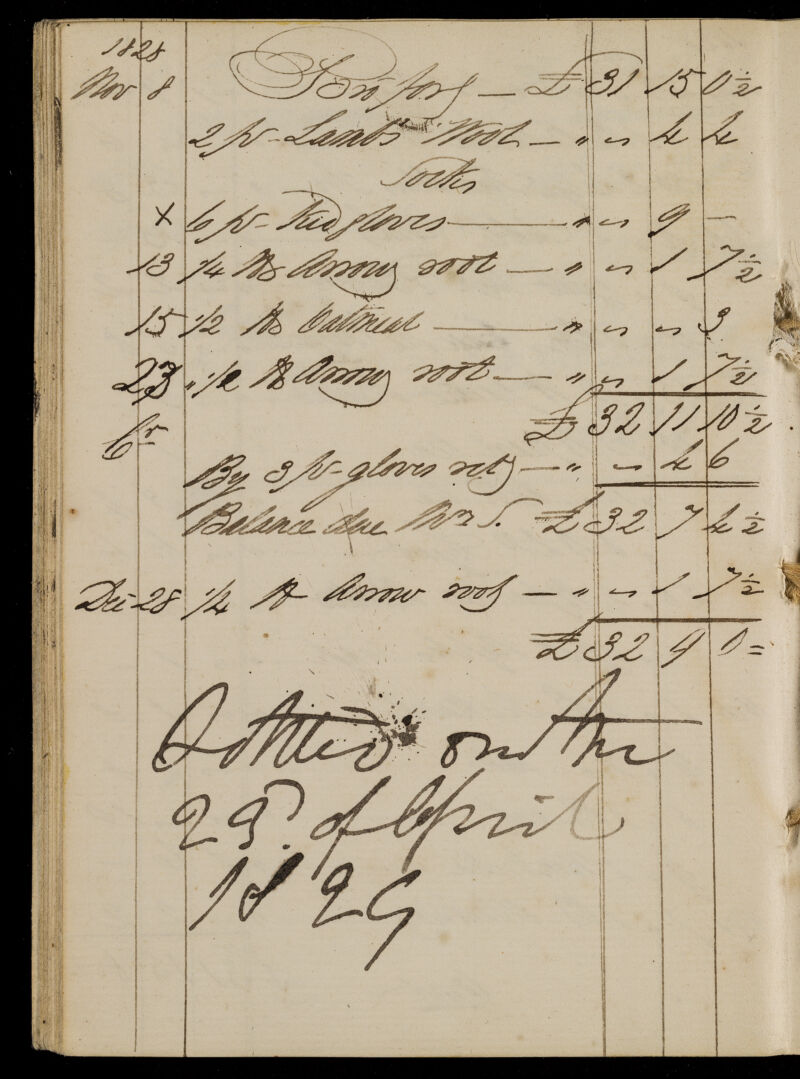 1828
Nov 8 Bro ford — £ 31 15 0½
2 pr Lamb's Wool — " " 4 4
Socks
x 6 pr Kid gloves — " " 9 –
13 1/4 lb Arrow root — " " 1 7½
15 1/2 lb Oatmeal — " " " 3
23 " 1/2 lb Arrow root — " " 1 7½
£ 32 11 10½
Cr
By 3 pr gloves retd — " " 4 6
Balance due Mr S. £ 32 7 4½
Dec 28 1/4 lb Arrow root — " " 1 7½
£ 32 9 0 =
Settled on the
23d. of April
1829